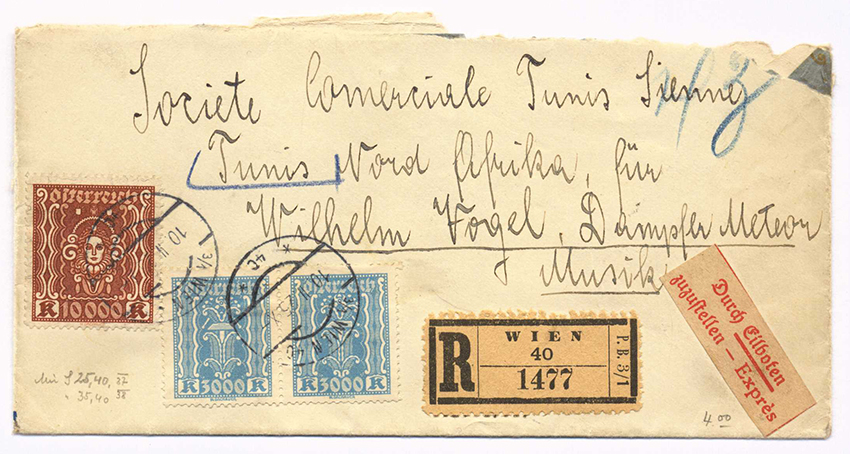 Societe Comerciale Tunis Sienne
Tunis Nord Afrika, für
Wilhelm Vogel, Dampfer Meteor
Musik
Österreich
K 10000 K
K 3000 K
K 3000 K
R
WIEN
40
1477
P.B. 3/1
Durch Eilboten
zuzustellen – Exprès
S 25,40,
35,40
4.00